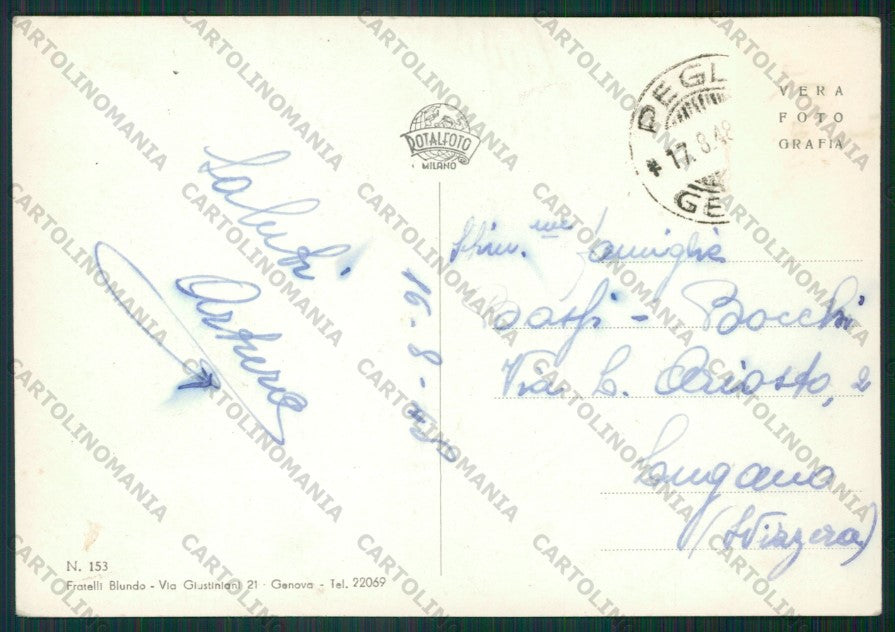 ROTALFOTO
MILANO
PEGL
* 17.8.48
GE
VERA
FOTO
GRAFIA
Saluti
Arturo
16-8-48
Stim.me famiglia
Bocchi
Via L. Ariosto, 2
Lugano
(Svizzera)
N. 153
Fratelli Blundo - Via Giustiniani 21 - Genova - Tel. 22069
CARTOLINOMANIA